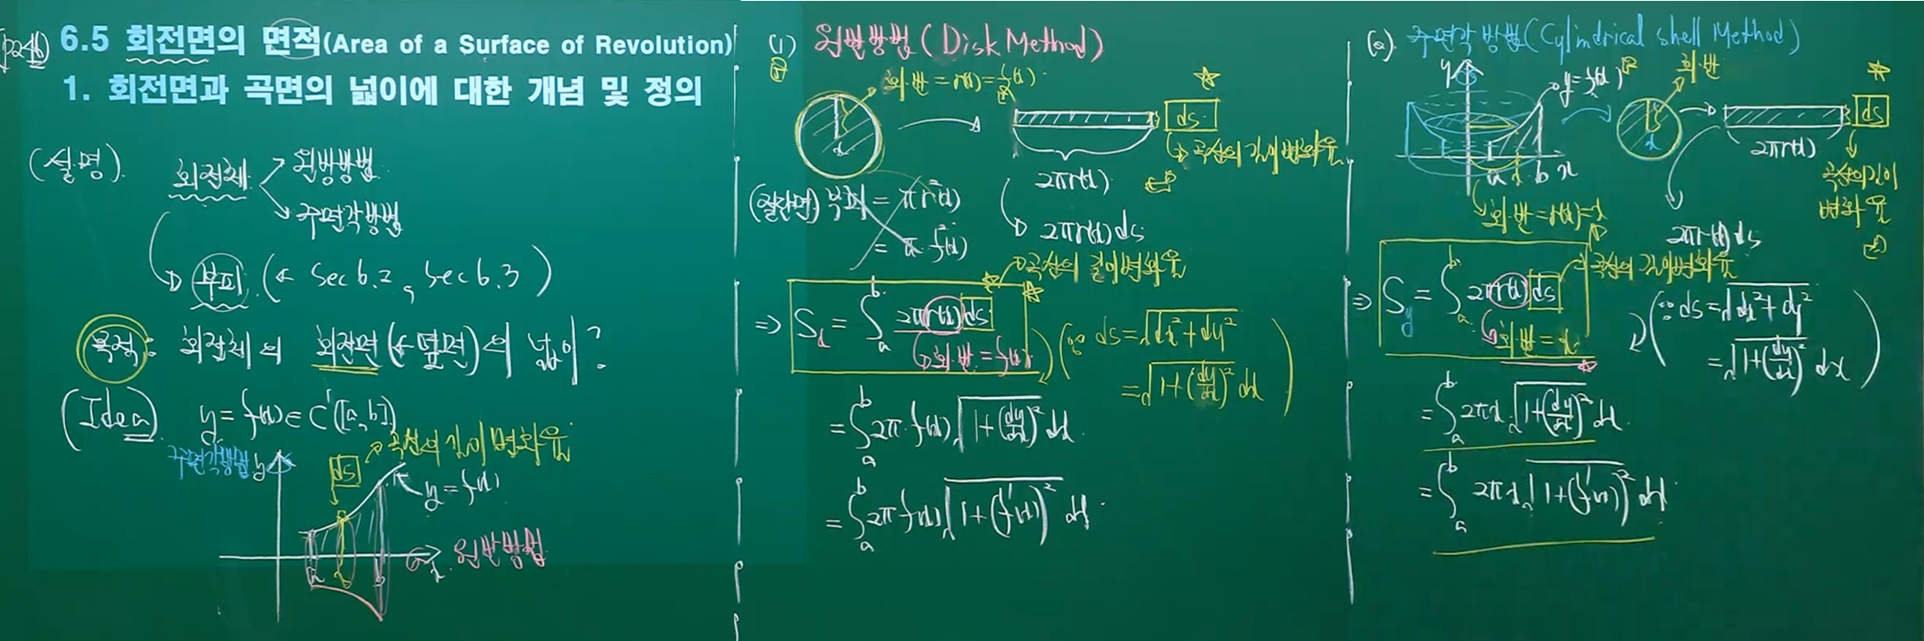 p246
6.5 회전면의 면적(Area of a Surface of Revolution)
1. 회전면과 곡면의 넓이에 대한 개념 및 정의
(설명).
회전체
원방방법
주면각방법
부피. (← Sec 6.2, Sec 6.3)
목적: 회전체의 회전면(←옆면)의 넓이?
(Idea) y=f(x)∈C'([a,b])
주면각방법 y
ds → 곡선의 길이 변화율
y=f(x)
a b x 원반방법
(1) 원반방법(Disk Method)
회·반 = r(x)=f(x).
ds.
곡선의 길이변화율
2πr(x)
(절단면) 부피 = πr²(x)
= π·f²(x)
2πr(x)ds
곡선의 길이변화율
⇒ Sx = ∫_a^b 2πr(x)ds
회·반 = f(x)
(∵ ds=√(dx²+dy²)
=√(1+(dy/dx)²) dx)
=∫_a^b 2π·f(x)√(1+(dy/dx)²) dx.
=∫_a^b 2πf(x)√(1+(f'(x))²) dx.
(2). 주면각 방법(Cylindrical shell Method)
y
y=f(x)
a x b x
회·반
ds
2πr(x)
곡선의길이
변화율
회·반=r(x)=x
2πr(x)ds
곡선의 길이변화율
⇒ Sy = ∫_a^b 2πr(x)ds
회·반=x
(∵ ds=√(dx²+dy²)
=√(1+(dy/dx)²) dx)
=∫_a^b 2πx√(1+(dy/dx)²) dx.
=∫_a^b 2πx√(1+(f'(x))²) dx.